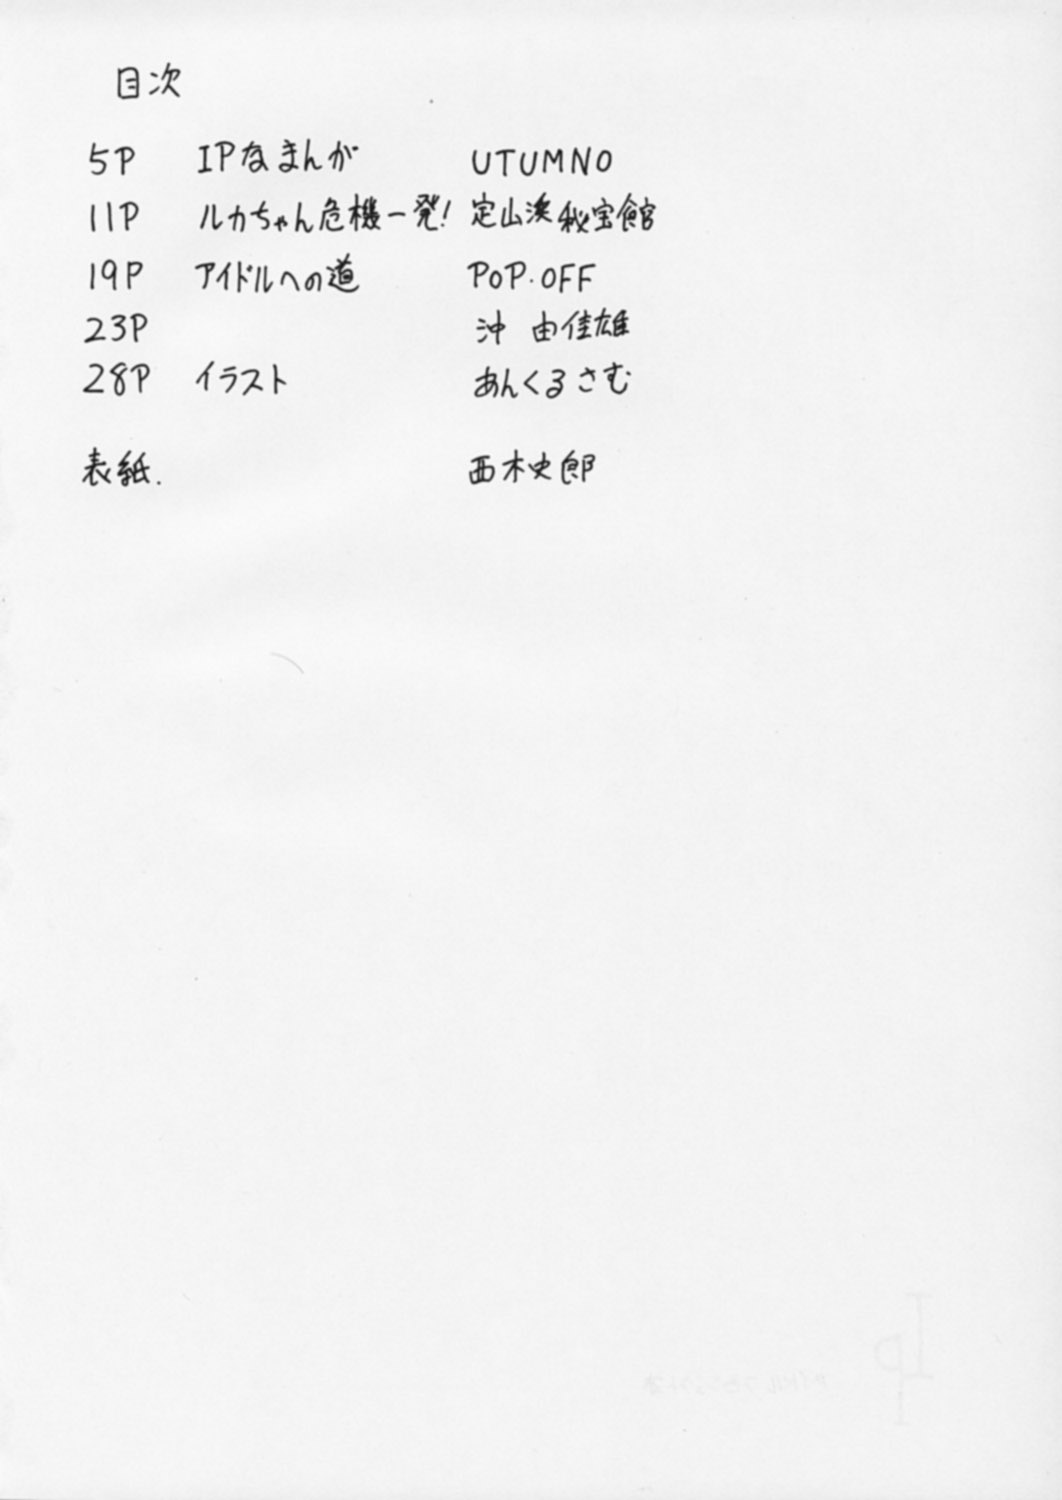 目次
5P IPなまんが UTUMNO
11P ルカちゃん危機一発! 定山渓秘宝館
19P アイドルへの道 POP・OFF
23P 沖 由佳雄
28P イラスト あんくるさむ
表紙. 西木史郎
IP
アイドルプロジェクト本